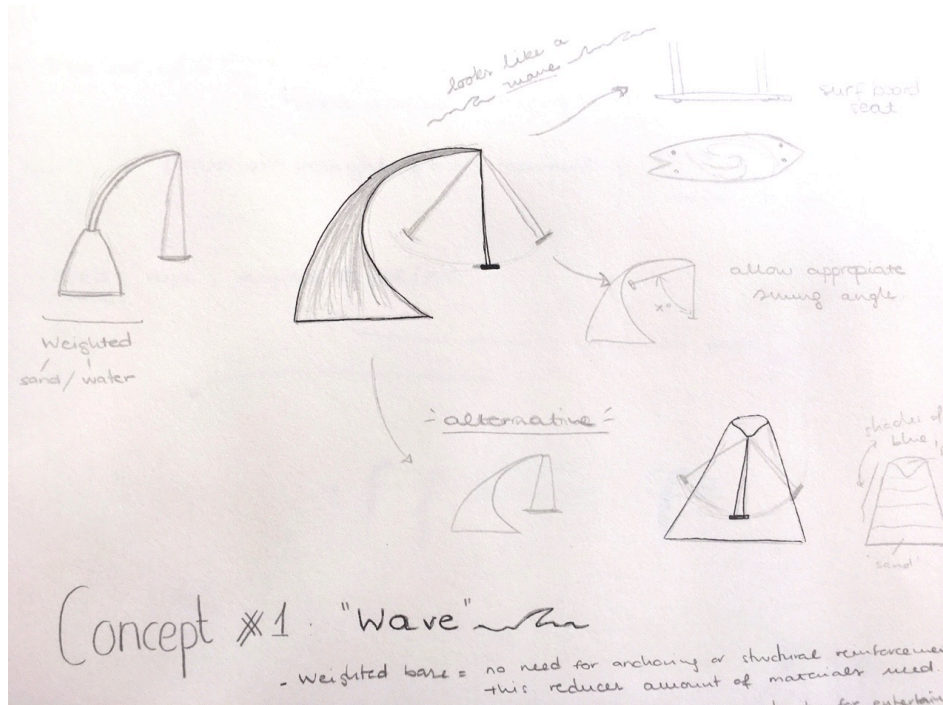 looks like a
wave
surf board
seat
allow appropiate
swing angle
x°
Weighted
sand / water
alternative
shades of
blue
'sand'
Concept #1 "Wave"
- Weighted base = no need for anchoring or structural reinforcemen
→ this reduces amount of materials used.
for entertain